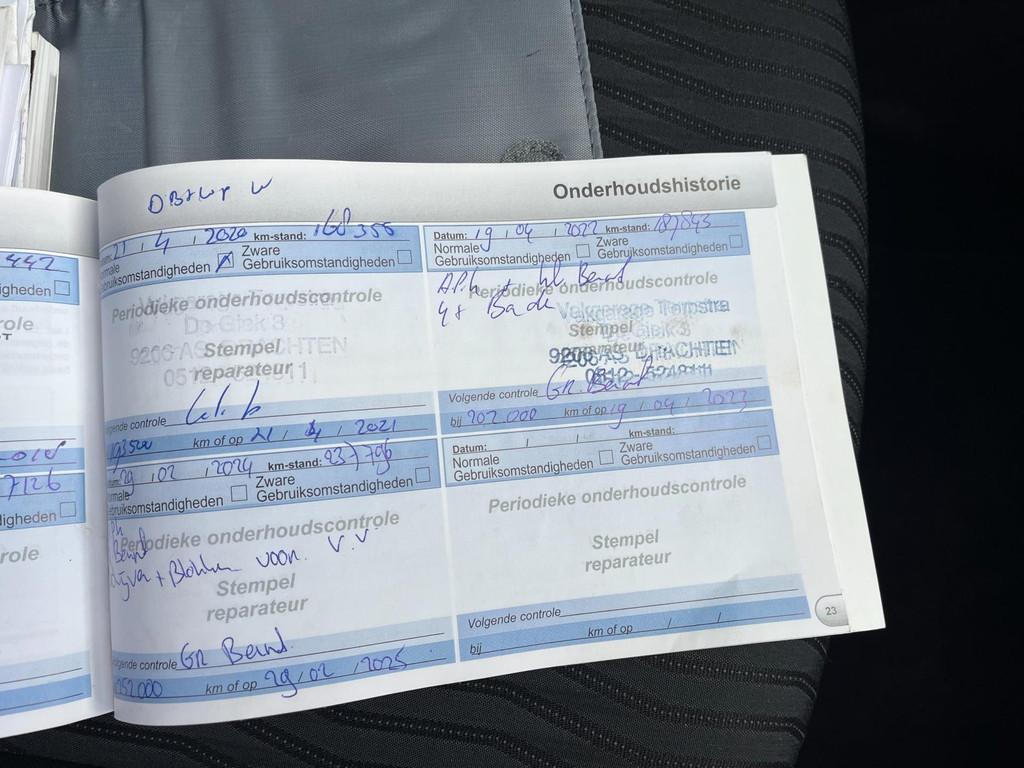 Onderhoudshistorie
442
igheden
role
2018
7126
igheden
role
21 / 4 / 2020 km-stand: 168355
Normale Gebruiksomstandigheden
Zware Gebruiksomstandigheden
Periodieke onderhoudscontrole
De Giek 3
9206 AS DRACHTEN
Stempel
reparateur
Volgende controle
193500 km of op 21 / 4 / 2021
Datum: 19 / 04 / 2022 km-stand: 187843
Normale
Gebruiksomstandigheden
Zware
Gebruiksomstandigheden
Periodieke onderhoudscontrole
4x
Vakgarage Terpstra
De Giek 3
Stempel
reparateur
9206 AS DRACHTEN
Volgende controle Gr. Beurt
bij 202.000 km of op 19 / 04 / 2023
29 / 02 / 2024 km-stand: 237796
Zware
Gebruiksomstandigheden
Periodieke onderhoudscontrole
Beurt
+ Blokken voor. V.V
Stempel
reparateur
Volgende controle Gr Beurt.
252.000 km of op 29 / 02 / 2025
Datum: / / km-stand:
Normale
Gebruiksomstandigheden
Zware
Gebruiksomstandigheden
Periodieke onderhoudscontrole
Stempel
reparateur
Volgende controle
bij km of op / /
23